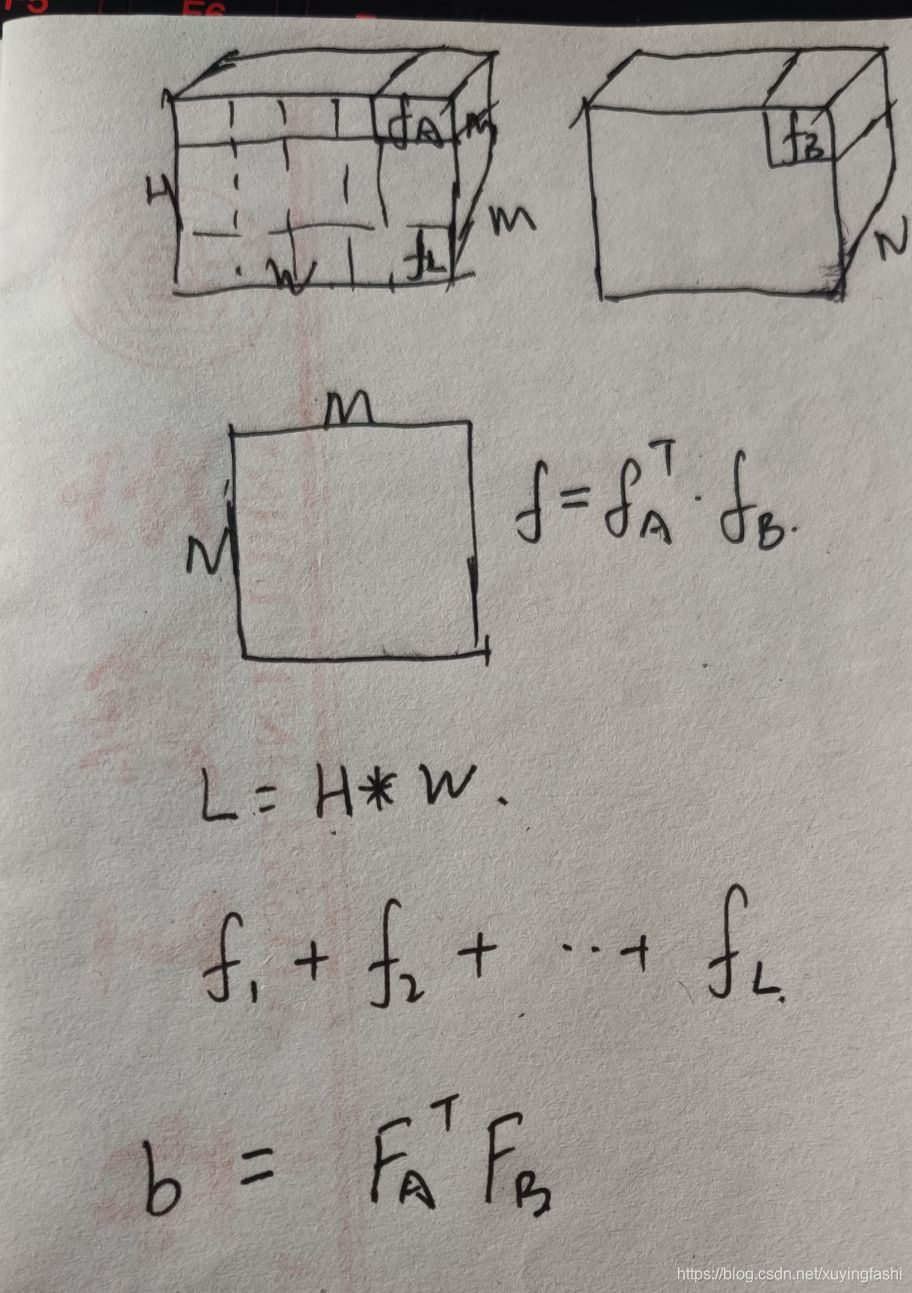 F6
fA M
H
M
W fL
fB
N
M
N
f = fA^T · fB.
L = H * W.
f1 + f2 + ··· + fL.
b = FA^T FB
https://blog.csdn.net/xuyingfashi